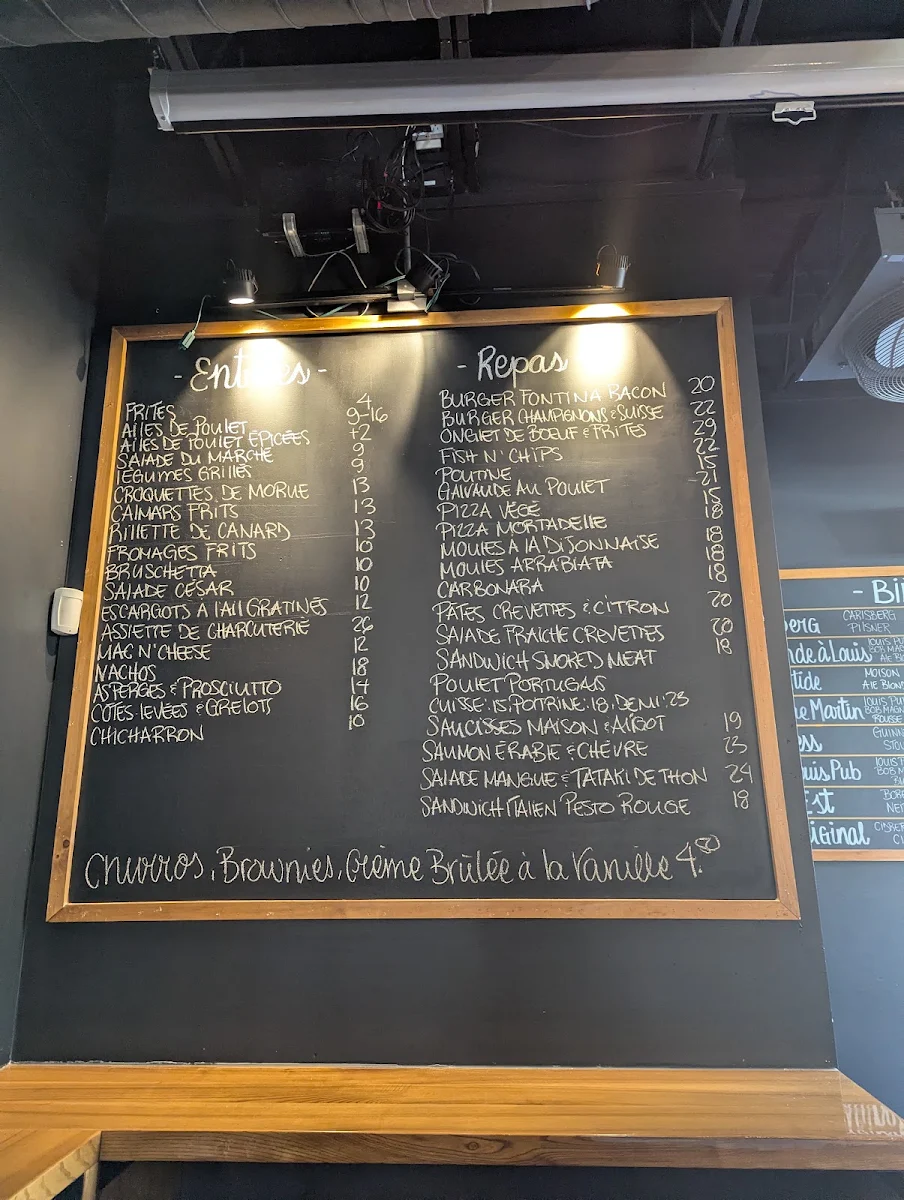 - Entrées -
FRITES 4
AILES DE POULET 9-16
AILES DE POULET ÉPICÉES +2
SALADE DU MARCHÉ 9
LÉGUMES GRILLÉS 9
CROQUETTES DE MORUE 13
CALMARS FRITS 13
RILLETTE DE CANARD 13
FROMAGES FRITS 10
BRUSCHETTA 10
SALADE CÉSAR 10
ESCARGOTS A l'AIL GRATINÉS 12
ASSIETTE DE CHARCUTERIE 26
MAC N'CHEESE 12
NACHOS 18
ASPERGES & PROSCIUTTO 14
CÔTES LEVÉES & GRELOTS 16
CHICHARRON 10
- Repas -
BURGER FONTINA BACON 20
BURGER CHAMPIGNONS & SUISSE 22
ONGLET DE BOEUF & FRITES 29
FISH N' CHIPS 22
POUTINE 15
GALVAUDE AU POULET 21
PIZZA VÉGÉ 15
PIZZA MORTADELLE 18
MOULES A LA DIJONNAISE 18
MOULES ARRABIATA 18
CARBONARA 18
PÂTES CREVETTES & CITRON 20
SALADE FRAICHE CREVETTES 20
SANDWICH SMOKED MEAT 18
POULET PORTUGAIS
CUISSE: 15, POITRINE: 18, DEMI: 23
SAUCISSES MAISON & ALIGOT 19
SAUMON ÉRABLE & CHÈVRE 23
SALADE MANGUE & TATAKI DE THON 24
SANDWICH ITALIEN PESTO ROUGE 18
Churros, Brownies, Crème Brûlée à la Vanille 4.50
- BI
CARLSBERG
PILSNER
de à Louis
MOISON
tide
le Martin
ROUSSE
ess
GUINN
STOU
ouis Pub
Est
riginal